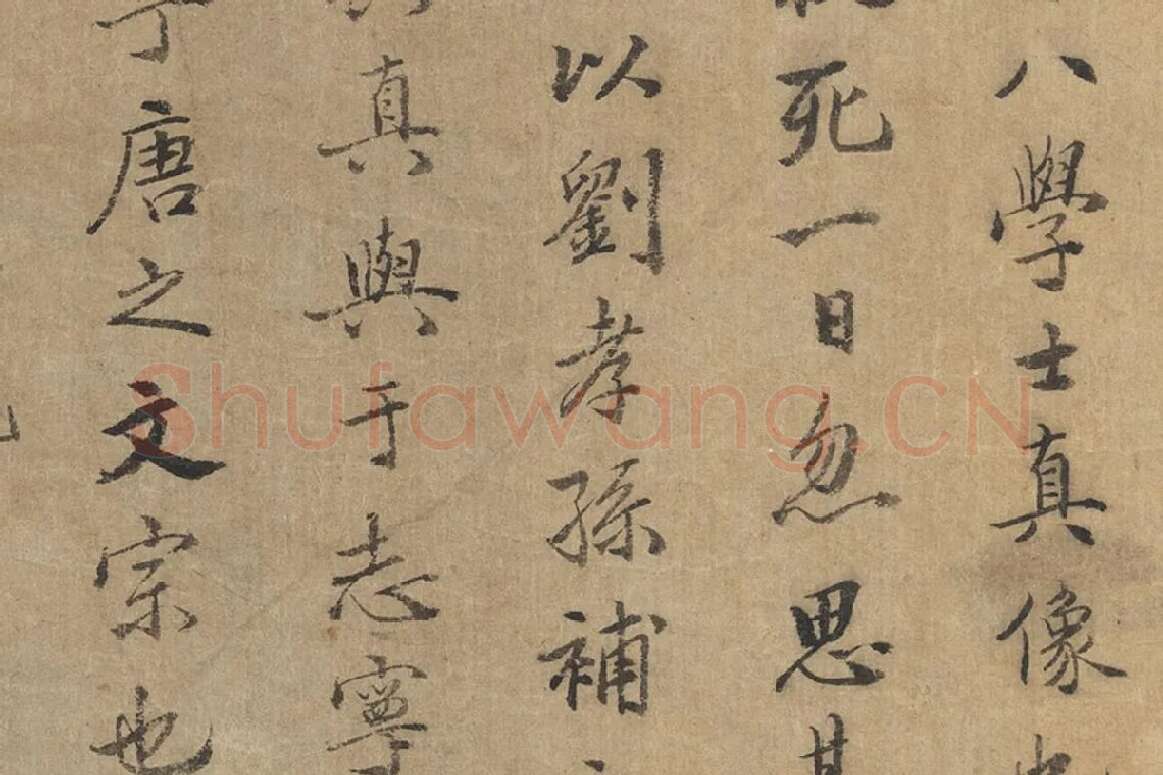 八學士真像也
死一日忽思其
以劉孝孫補
真與于志寧
于唐之文宗也
Shufawang.CN